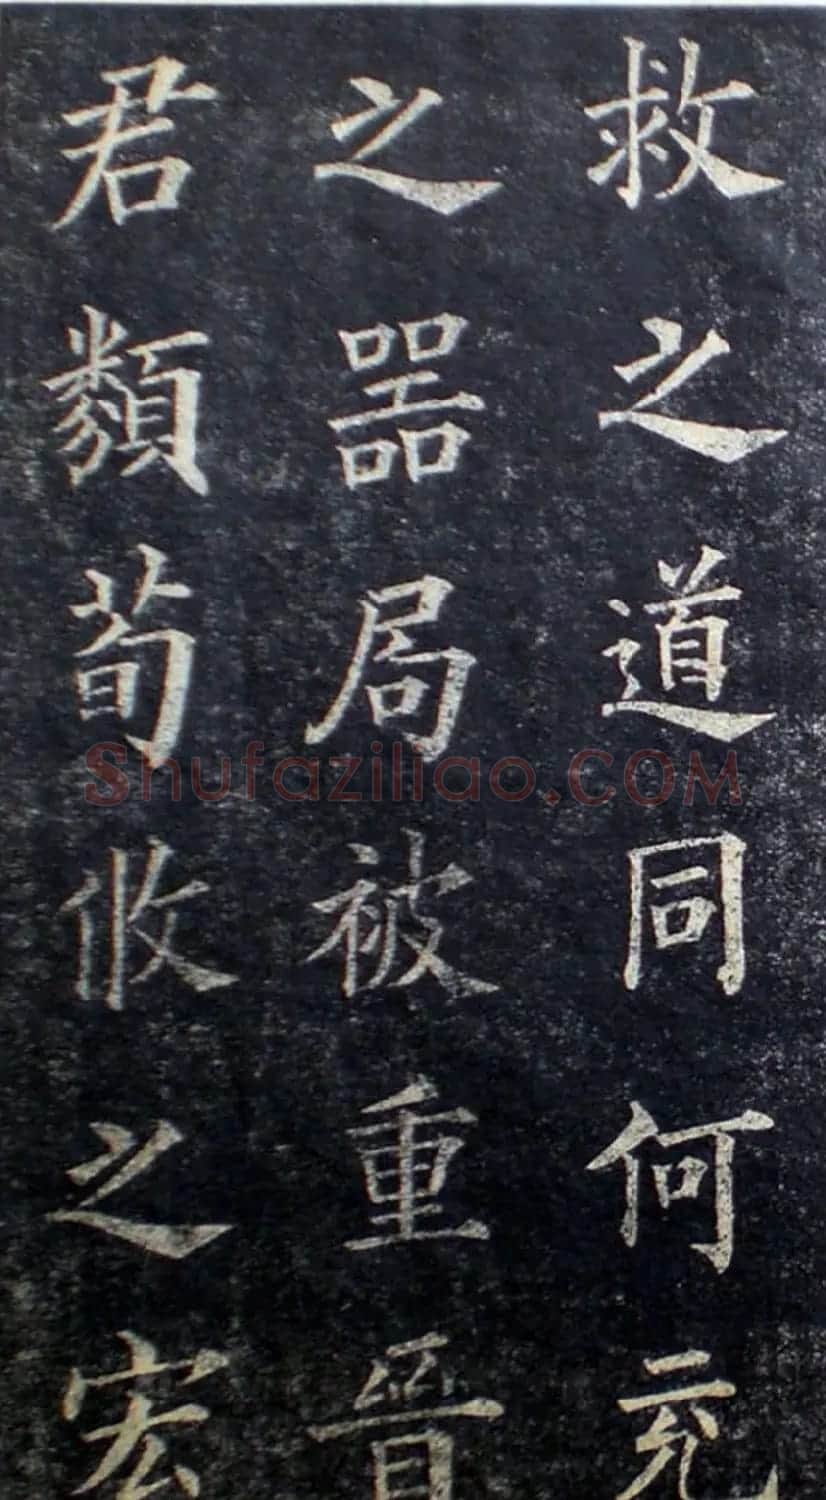 救之道同何充
之器局被重晉
君類荀攸之宏
Shufaziliao.COM